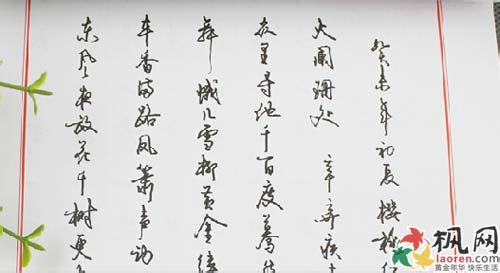 东风夜放花千树更
车香满路凤箫声动
舞蛾儿雪柳黄金缕
众里寻他千百度蓦然
火阑珊处 辛弃疾
癸未年初夏
枫网
laoren.com
黄金年华 快乐生活